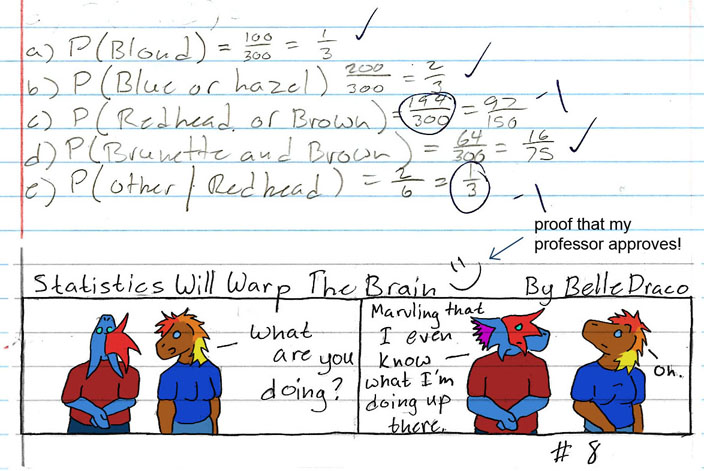 a) P(Blond) = 100/300 = 1/3 ✓
b) P(Blue or hazel) 200/300 = 2/3 ✓
c) P(Redhead or Brown) = 194/300 = 97/150 -1
d) P(Brunette and Brown) = 64/300 = 16/75 ✓
e) P(other | Redhead) = 2/6 = 1/3 -1
proof that my
professor approves!
Statistics Will Warp The Brain By BelleDraco
What
are you
doing?
Marvling that
I even
know
what I'm
doing up
there.
Oh.
# 8